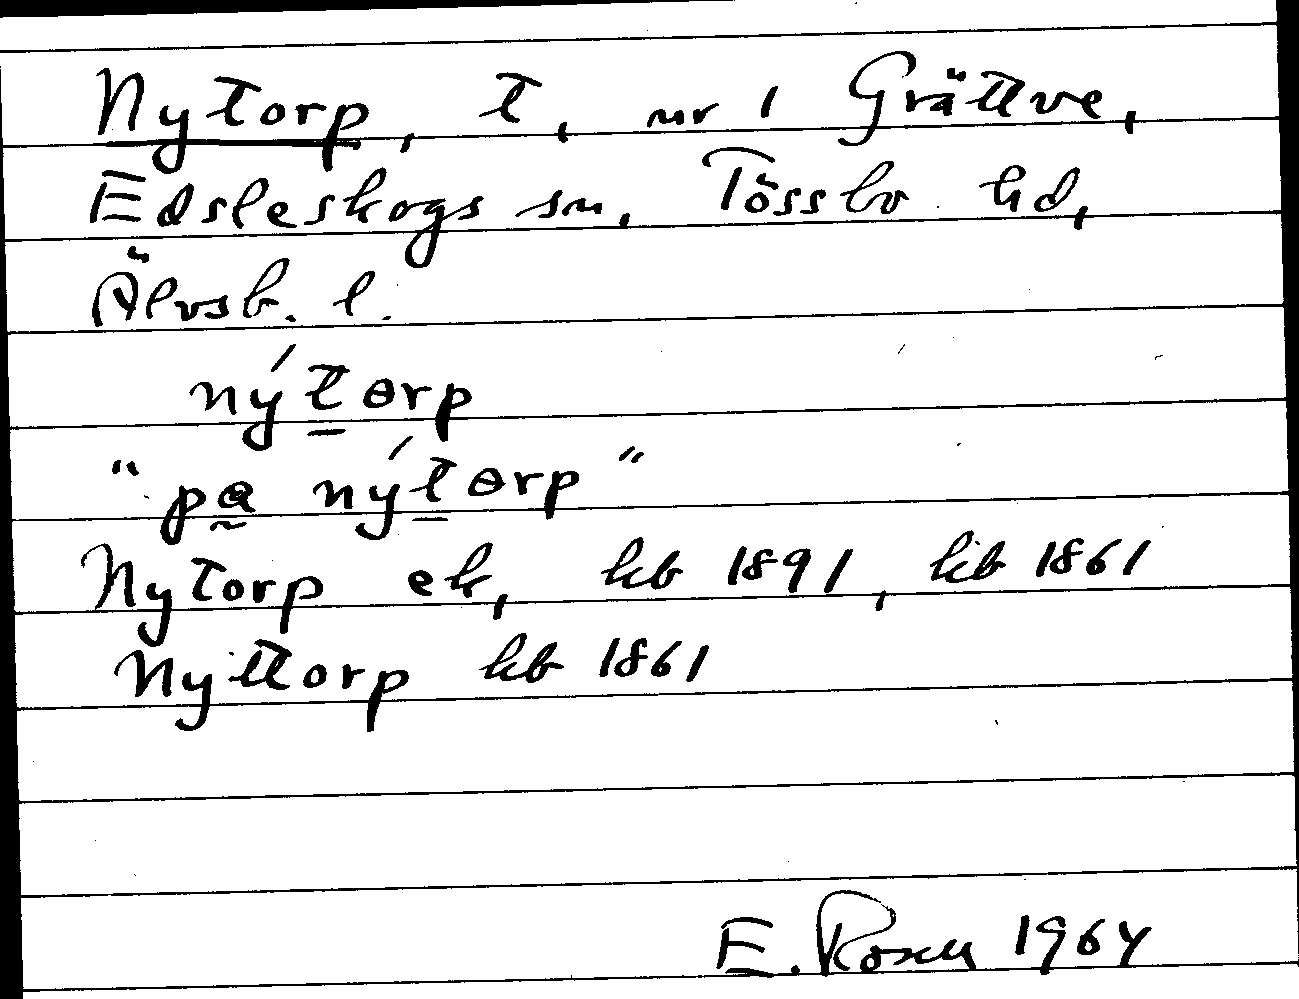 Nytorp, t, nr 1 Grättve,
Edsleskogs sn, Tössbo hd,
Älvsb. l.
nýt̲ɵrp
"pa̰ nýt̲ɵrp"
Nytorp ek, kb 1891, kb 1861
Nyttorp kb 1861
E. Rosen 1964